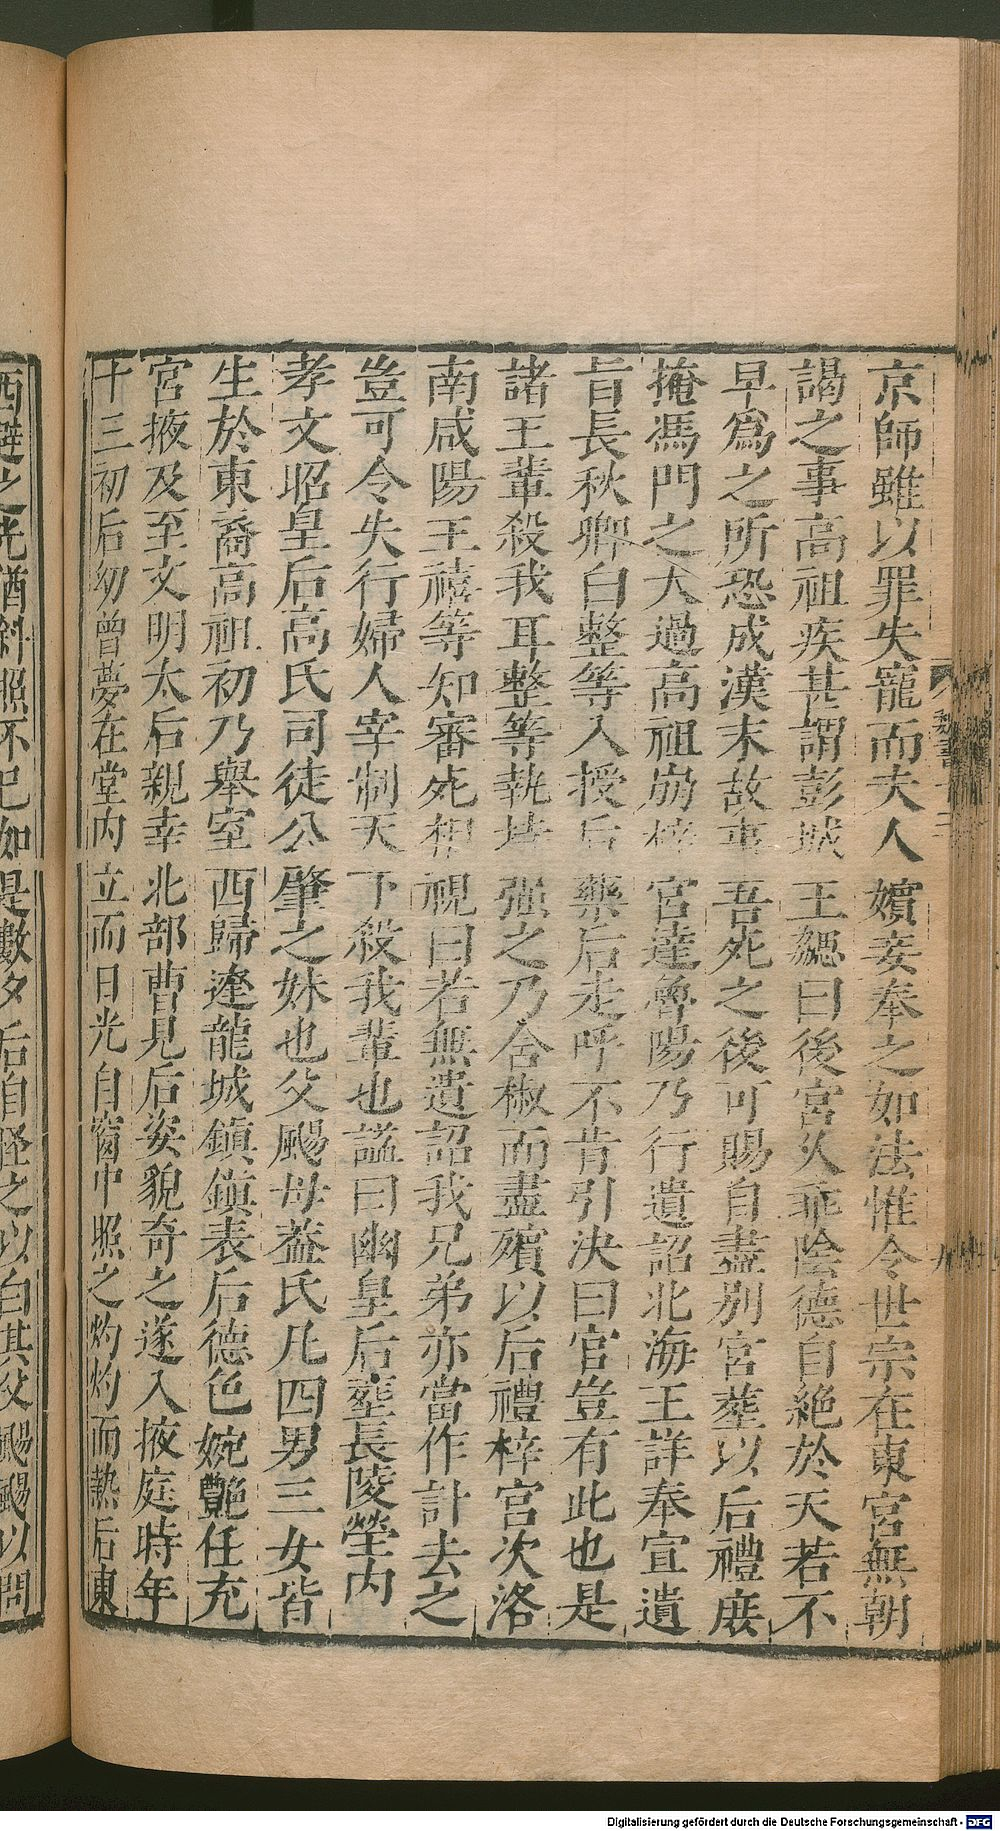 京師雖以罪失寵而夫人嬪妾奉之如法惟令世宗在東宮無朝
謁之事高祖疾甚謂彭城王勰曰後宮久乖陰德自絕於天若不
早爲之所恐成漢末故事吾死之後可賜自盡別宮葬以后禮庶
掩馮門之大過高祖崩梓宮達魯陽乃行遺詔北海王詳奉宣遺
旨長秋卿白整等入授后藥后走呼不肯引決曰官豈有此也是
諸王輩殺我耳整等執持强之乃含椒而盡殯以后禮梓宮次洛
南咸陽王禧等知審死相視曰若無遺詔我兄弟亦當作計去之
豈可令失行婦人宰制天下殺我輩也諡曰幽皇后葬長陵塋內
孝文昭皇后高氏司徒公肇之妹也父颺母葢氏凡四男三女皆
生於東裔高祖初乃舉室西歸達龍城鎮鎮表后德色婉艷任充
宮掖及至文明太后親幸北部曹見后姿貌奇之遂入掖庭時年
十三初后幼曾夢在堂內立而日光自窗中照之灼灼而熱后東
西避之光猶斜照不已如是數夕后自怪之以白其父颺颺以問
魏書十三
九
Digitalisierung gefördert durch die Deutsche Forschungsgemeinschaft - DFG